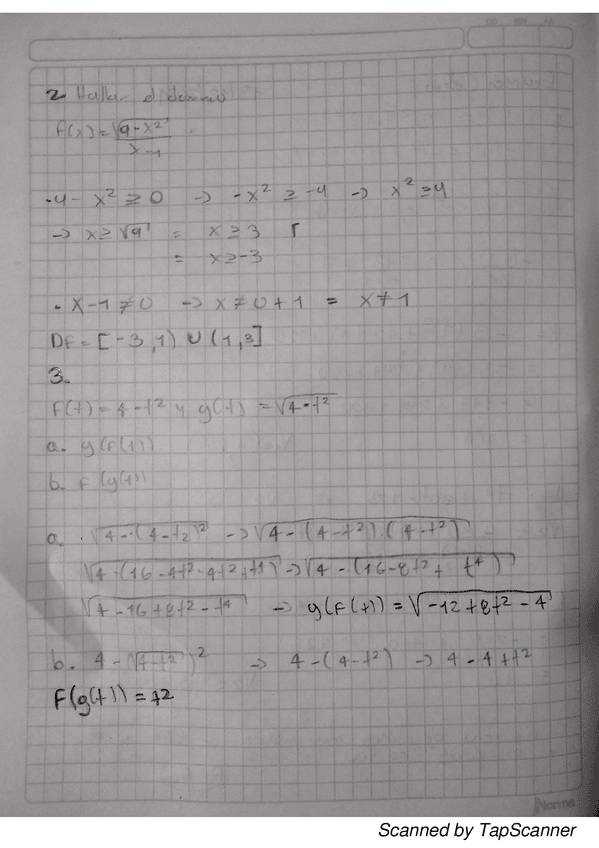 2 Hallar el dominio
f(x) = √(9-x²) / x-1
· 4 - x² ≥ 0 -> -x² ≥ -4 -> x² ≥ 4
-> x ≥ √9 = x ≥ 3
= x ≥ -3
· x-1 ≠ 0 -> x ≠ 0+1 = x ≠ 1
Df = [-3,1) ∪ (1,3]
3.
F(t) = 4 - t² y g(t) = √(4-t²)
a. g(f(t))
b. f(g(t))
a. · √(4-(4-t²)²) -> √(4-(4-t²).(4-t²))
√(4-(16-4t²-4t²+t⁴)) -> √(4-(16-8t²+t⁴))
√(4-16+8t²-t⁴) -> g(f(t)) = √(-12+8t²-4)
b. 4-(√(4-t²))² -> 4-(4-t²) -> 4-4+t²
F(g(t)) = t2
Norma
Scanned by TapScanner